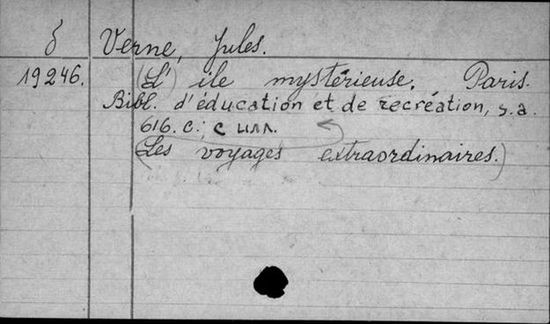 δ Verne, Jules.
19246. (L') ile mystérieuse. Paris.
Bibl. d'éducation et de recréation, s.a.
616. c.; с илл.
(Les voyages extraordinaires.)